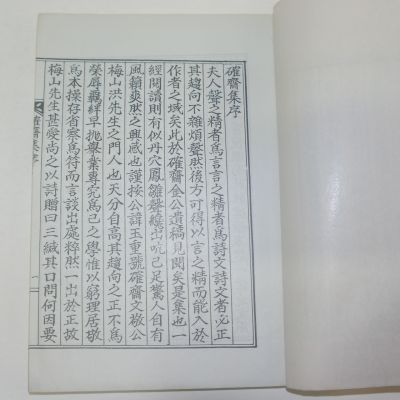 確齋集序
夫人聲之精者爲言言之精者爲詩文詩文者必正
其趨向不雜煩聲然後方可得以言之精而能入於
作者之域矣此於確齋金公遺稿見閱矣是集也一
經閱讀則有似丹穴鳳雛聲纔出吭已足驚人自有
風籟爽然之興感也謹按公諱玉重號確齋之敬公
梅山洪先生之門人也天分自高其趨向之正不爲
榮辱羈絆早抛擧業專究爲己之學惟以窮理居敬
爲本操存省察爲符而言談出處粹然一出於正故
梅山先生甚愛尚之以詩贈曰三緘其口問何因要
確齋集序
一